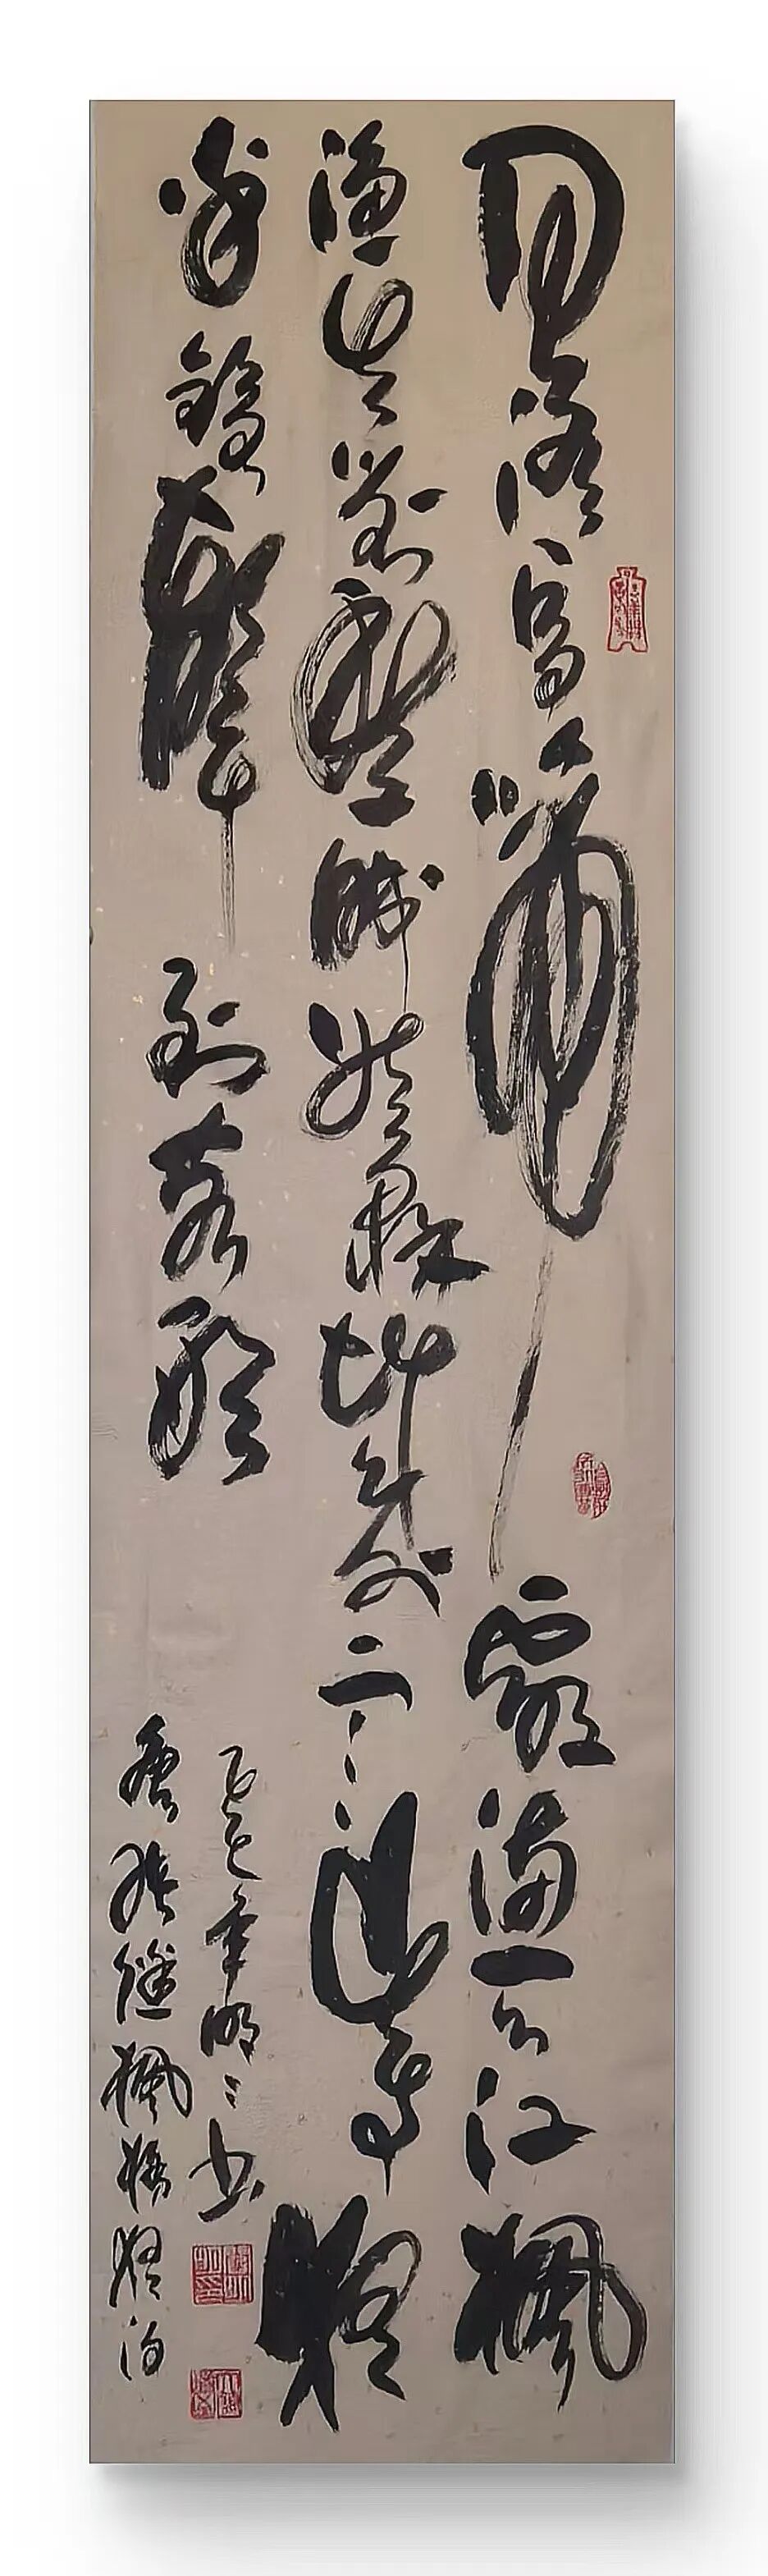 月落乌啼霜满天江枫
渔火对愁眠姑苏城外寒山寺夜
半钟声到客船
乙巳年明〻书
唐张继枫桥夜泊